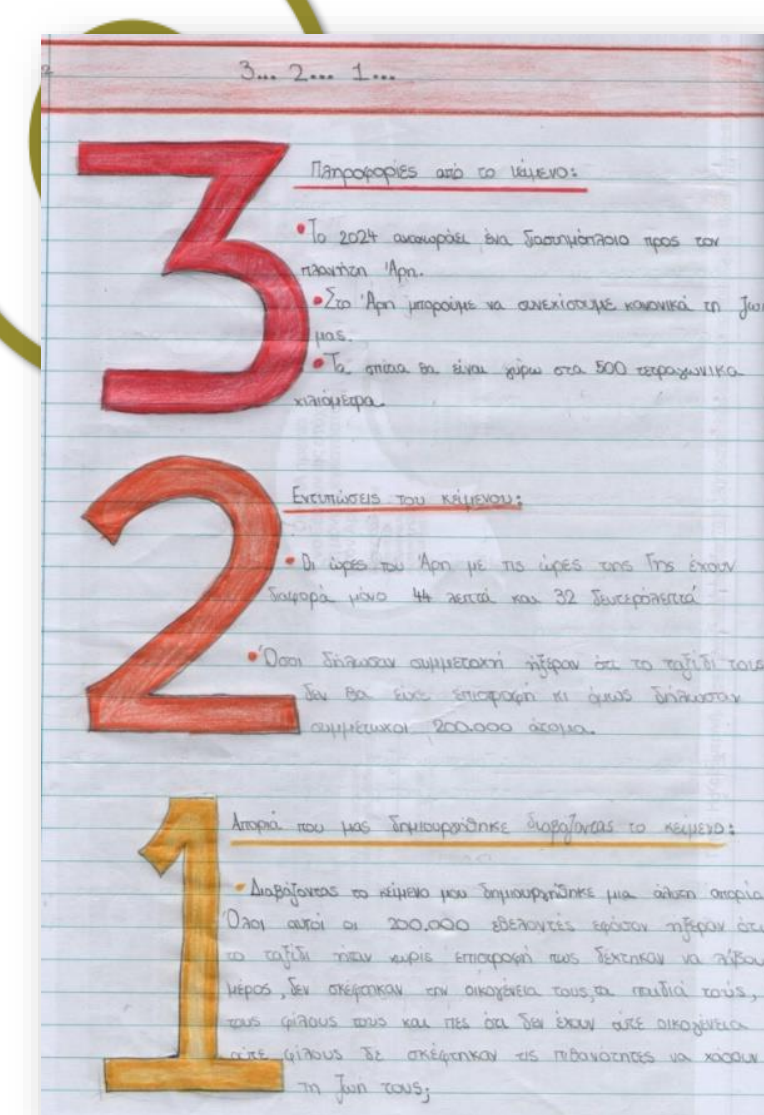 3... 2... 1...
Πληροφορίες από το κείμενο:
•Το 2024 αναχωράει ένα διαστημόπλοιο προς τον
πλανήτη Άρη.
•Στο Άρη μπορούμε να συνεχίσουμε κανονικά τη ζωή
μας.
•Τα σπίτια θα είναι γύρω στα 500 τετραγωνικα
χιλιόμετρα.
Εντυπώσεις του κείμενου:
•Οι ώρες του Άρη με τις ώρες της Γης έχουν
διαφορά μόνο 44 λεπτά και 32 δευτερόλεπτα
•Όσοι δήλωσαν συμμετοχή ήξεραν ότι το ταξίδι τους
δεν θα είχε επιστροφή κι όμως δήλωσαν
συμμέτοχοι 200.000 άτομα.
Απορία που μας δημιουργήθηκε διαβάζοντας το κείμενο:
•Διαβάζοντας το κείμενο μου δημιουργήθηκε μια άλυτη απορία
Όλοι αυτοί οι 200.000 εθελοντές εφόσον ήξεραν ότι
το ταξίδι ήταν χωρίς επιστροφή πως δέχτηκαν να λάβου
μέρος, δεν σκέφτηκαν την οικογένεια τους, τα παιδιά τούς,
τους φίλους τους και πες ότι δεν έχουν ούτε οικογένεια
ούτε φίλους δε σκέφτηκαν τις πιθανότητες να χάσουν
τη ζωή τους;
3
2
1